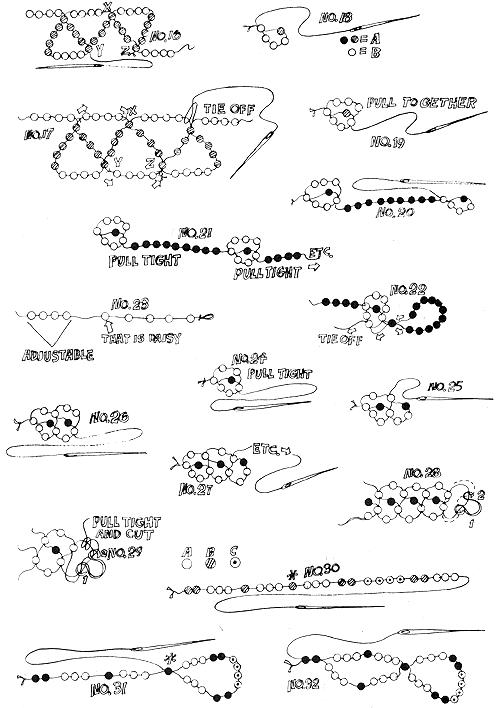 X
NO.16
Y Z
NO.18
= A
= B
TIE OFF
X
NO.17
Y Z
PULL TOGETHER
NO.19
NO.20
NO.21
PULL TIGHT
ETC.
PULL TIGHT
NO.23
THAT IS DAISY
ADJUSTABLE
NO.22
TIE OFF
NO.24
PULL TIGHT
NO.25
NO.26
ETC.
NO.27
NO.28
2
1
PULL TIGHT
AND CUT
NO.29
1
A B C
* NO.30
*
NO.31
NO.32